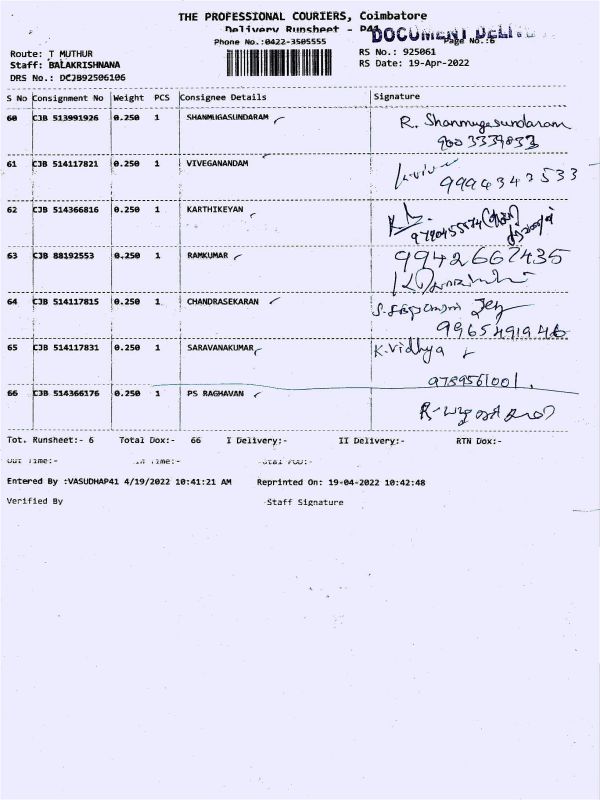 THE PROFESSIONAL COURIERS, Coimbatore
Delivery Runsheet - P41
DOCUMENT
Phone No.:0422-3505555
Page No.:6
Route: T MUTHUR
RS No.: 925061
Staff: BALAKRISHNANA
RS Date: 19-Apr-2022
DRS No.: DCJB92506106
S No Consignment No Weight PCS Consignee Details Signature
60 CJB 513991926 0.250 1 SHANMUGASUNDARAM R. Shanmugasundaram
9003339833
61 CJB 514117821 0.250 1 VIVEGANANDAM
9994342533
62 CJB 514366816 0.250 1 KARTHIKEYAN
63 CJB 88192553 0.250 1 RAMKUMAR 9942667435
64 CJB 514117815 0.250 1 CHANDRASEKARAN
9965491946
65 CJB 514117831 0.250 1 SARAVANAKUMAR K.Vidhya
9789561001
66 CJB 514366176 0.250 1 PS RAGHAVAN
Tot. Runsheet:- 6 Total Dox:- 66 I Delivery:- II Delivery:- RTN Dox:-
Entered By :VASUDHAP41 4/19/2022 10:41:21 AM Reprinted On: 19-04-2022 10:42:48
Verified By Staff Signature